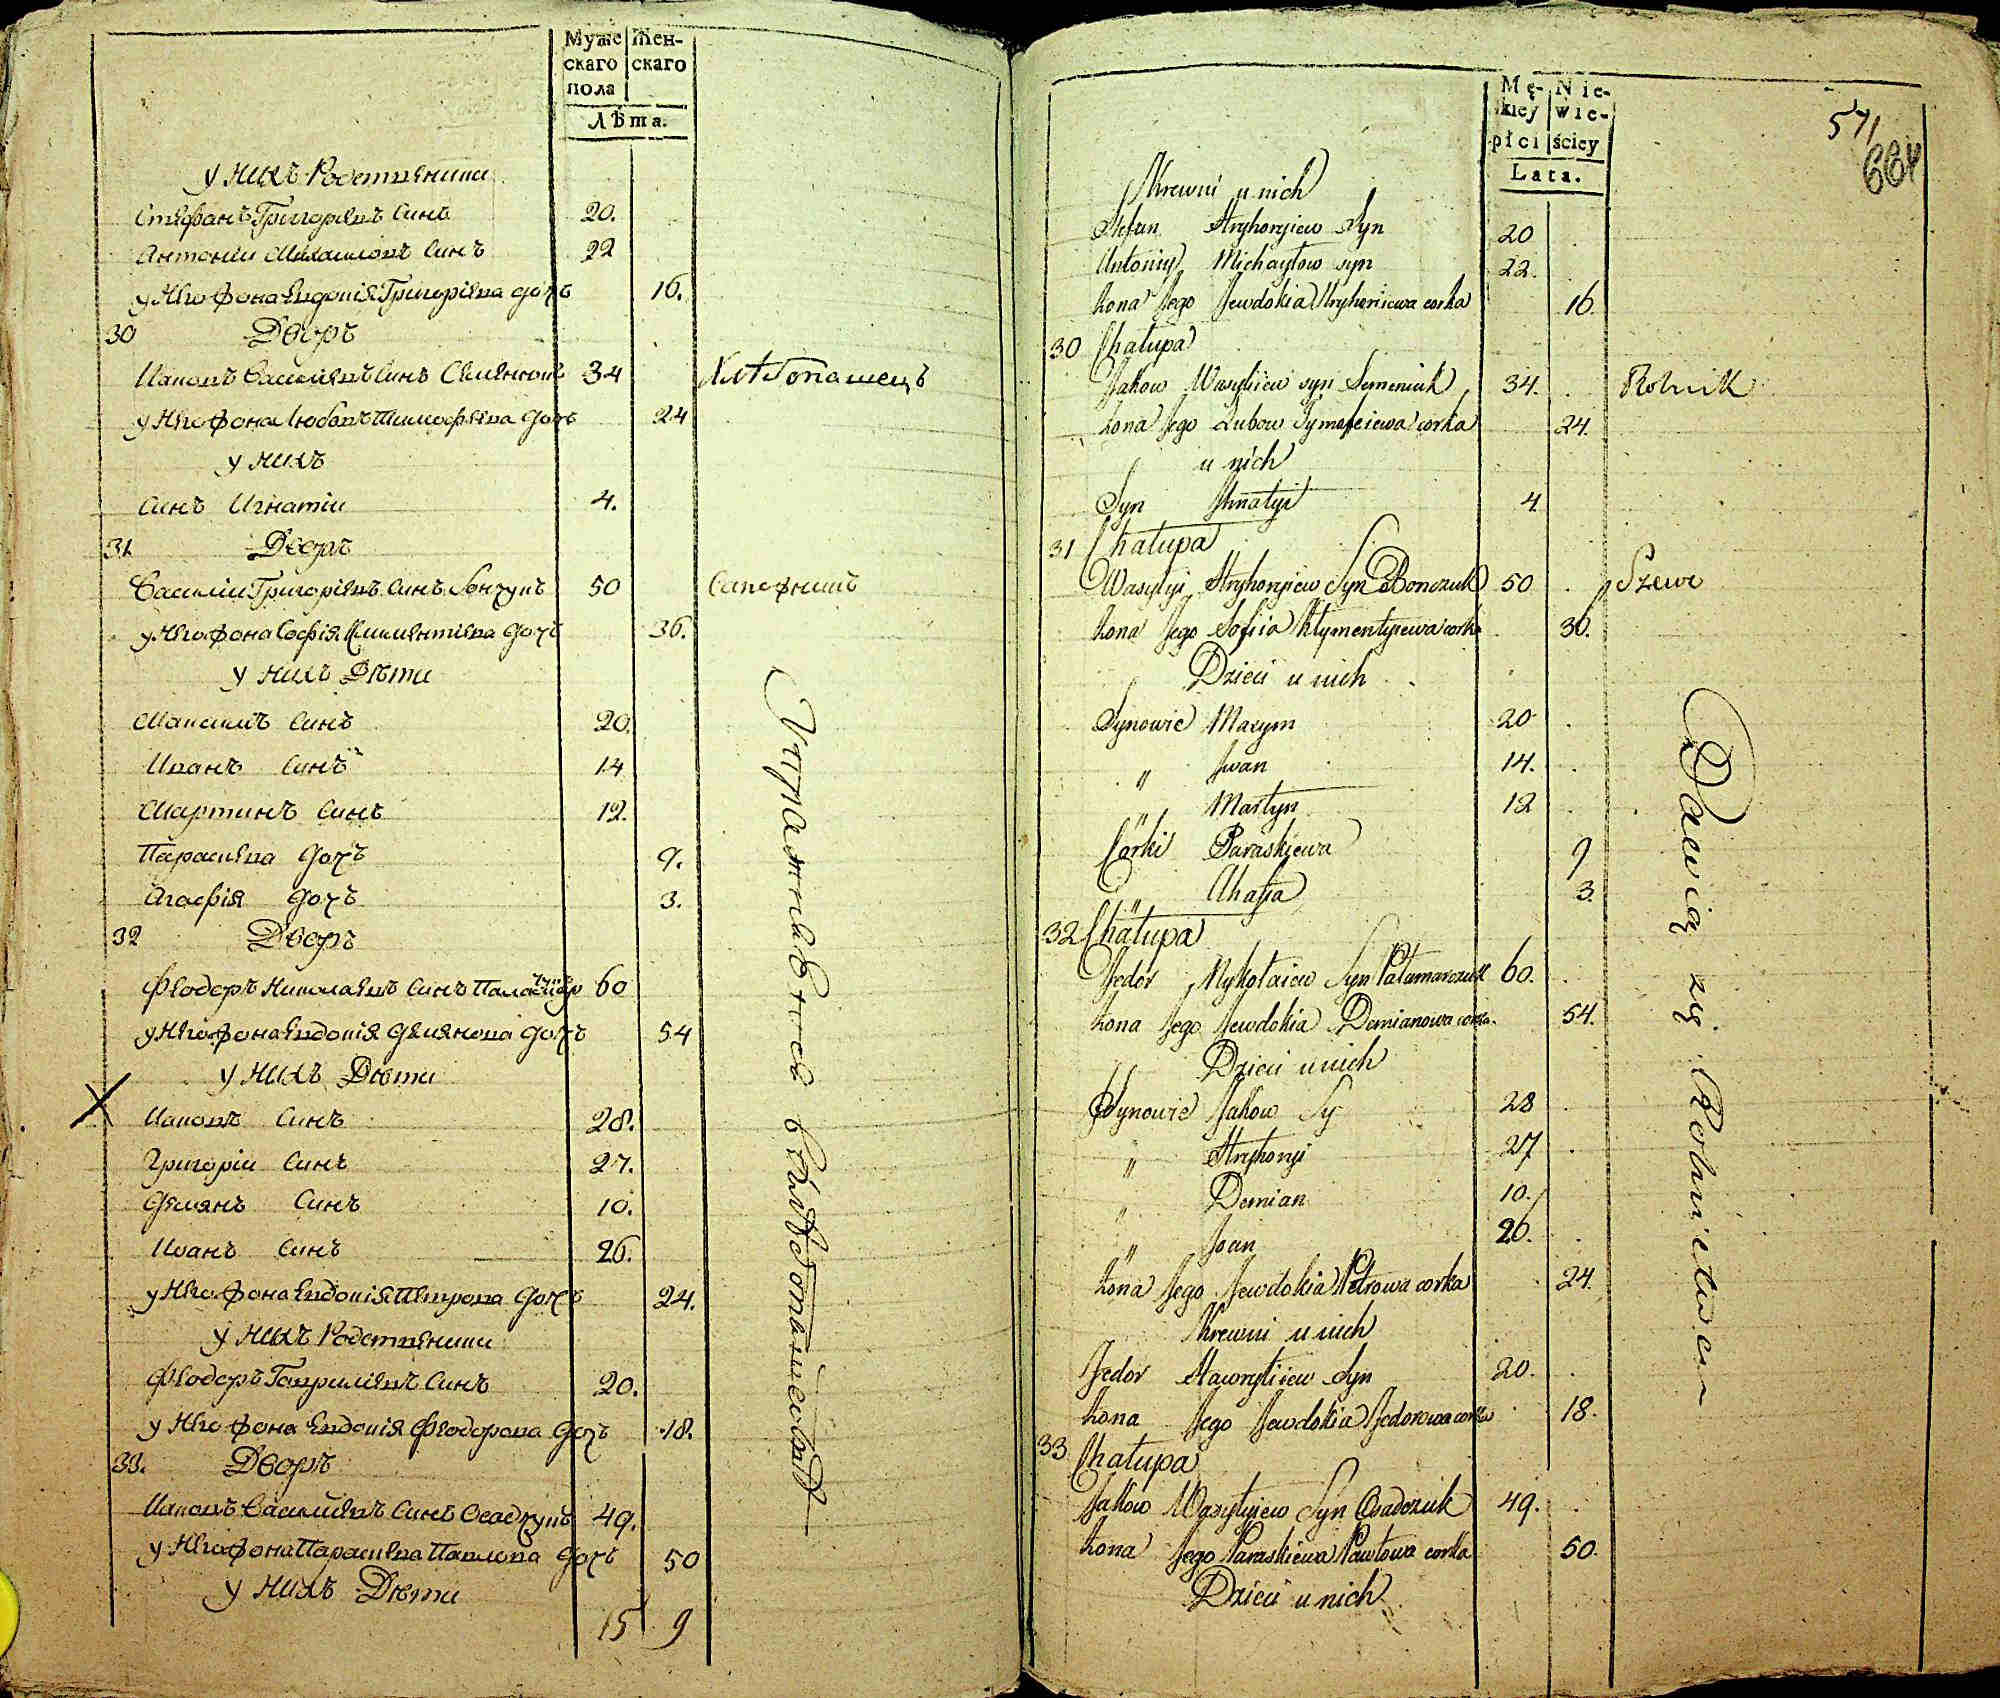 Муже
скаго
пола
Жен-
скаго
Лѣта.
у нихъ Родственники
Стефанъ Григориевъ Синъ 20.
Антоній Михаиловъ Синъ 22
у Него Жона Евдокія Григоріева дочъ 16.
30 Дворъ
Иаковъ Василиевъ Синъ Семенюкъ 34 Хлѣбопашецъ
у Него Жона Любовъ Тимофеева дочъ 24
у нихъ
Синъ Игнатій 4.
31. Дворъ
Василій Григоріевъ Синъ Бончукъ 50 Сапожникъ
у Него Жона Софія Климентіева дочъ 36.
у нихъ Дѣти
Максимъ Синъ 20.
Иванъ Синъ 14
Мартинъ Синъ 12.
Параскева дочъ 9.
Агафія дочъ 3.
32 Дворъ
Феодоръ Николаевъ Синъ 60
у Него Жона Евдокія Демянова дочъ 54
у нихъ Дѣти
Иаковъ Синъ 28.
Григорій Синъ 27.
Демянъ Синъ 10.
Иоанъ Синъ 26.
у Него Жона Евдокія Петрова дочъ 24.
у нихъ Родственники
Феодоръ Гавриліевъ Синъ 20.
у Него Жона Евдокія Феодорова дочъ 18.
33. Дворъ
Иаковъ Василиевъ Синъ Осадчукъ 49.
у Него Жона Параскева Павлова дочъ 50
у нихъ Дѣти
15 9
Упражняются в хлѣбопашествѣ
Mę-
skiey
płci
Nie-
wie-
ściey
Lata.
571
664
Krewni u nich
Stefan Hryhoryiew Syn 20
Antoniy Michayłow syn 22.
Żona Jego Jewdokia Hryhoriewa corka 16.
30 Chałupa
Jakow Wasyliiew syn Semeniuk 34. Rolnik
Żona Jego Lubow Tymofeiewa corka 24.
u nich
Syn Ihnatyi 4
31 Chałupa
Wasylyi Hryhoryiew Syn Bonczuk 50 Szewc
Żona Jego Sofiia Klymentyiewa corka 36.
Dzieci u nich
Synowie Maxym 20
" Iwan 14.
" Martyn 12
Córki Paraskiewa 9
" Ahafia 3.
32 Chałupa
Fedor Mykołaiew Syn Pałamarczuk 60.
Żona Jego Jewdokia Demianowa corka 54.
Dzieci u nich
Synowie Jakow Sy 28
" Hryhoryi 27
" Demian 10.
" Joan 26.
Żona Jego Jewdokia Petrowa corka 24.
Krewni u nich
Fedor Hawryliiew Syn 20.
Żona Jego Jewdokia Fedorowa corka 18.
33 Chałupa
Jakow Wasylyiew Syn Osadczuk 49.
Żona Jego Paraskiewa Pawłowa corka 50.
Dzieci u nich
Bawią się Rolnictwem